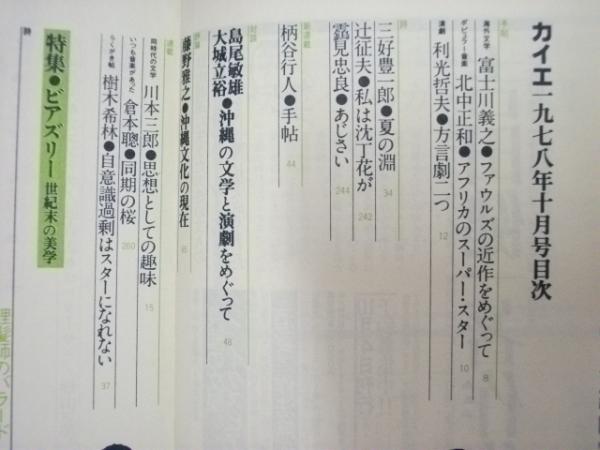 カイエ一九七八年十月号目次
本暦
海外文学 富士川義之●ファウルズの近作をめぐって 8
ポピュラー音楽 北中正和●アフリカのスーパー・スター 10
演劇 利光哲夫●方言劇二つ 12
詩
三好豊一郎●夏の淵 34
辻征夫●私は沈丁花が 242
鶴見忠良●あじさい 244
新連載
柄谷行人●手帖 44
対談
島尾敏雄
大城立裕●沖縄の文学と演劇をめぐって 48
評論
藤野雅之●沖縄文化の現在 6
連載
同時代の文学 川本三郎●思想としての趣味 15
いつも音楽があった 倉本聰●同期の桜 260
らくがき帖 樹木希林●自意識過剰はスターになれない 37
特集●ビアズリー 世紀末の美学
詩
理髪師のバラード